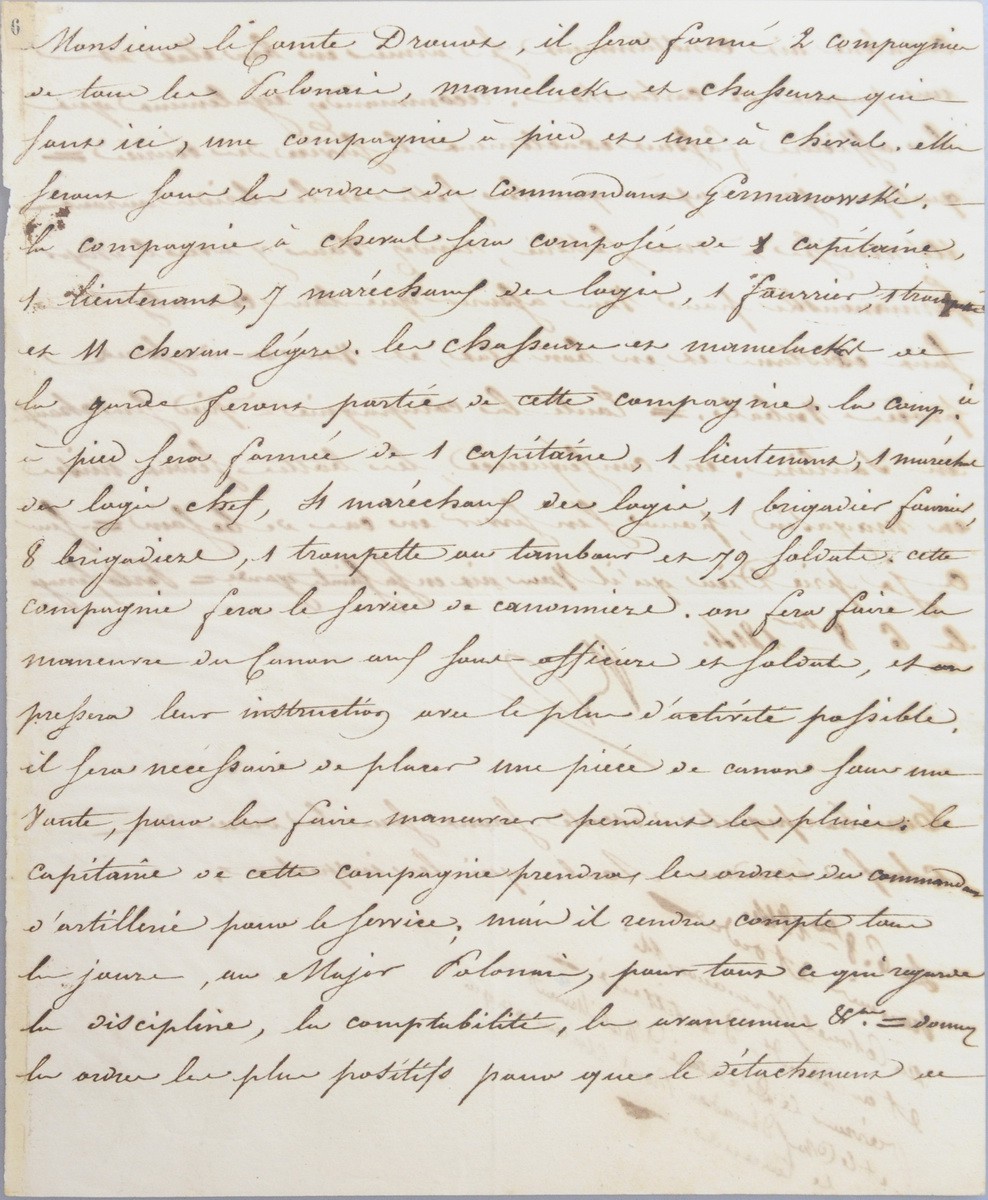 6
Monsieur le Comte Drouot, il sera formé 2 compagnies
de tous les Polonais, mamelucks et chasseurs qui
sont ici, une compagnie à pied et une à cheval. elles
seront sous les ordres du commandant Germanowski.
la compagnie à cheval sera composée de 1 capitaine,
1 lieutenant, 7 maréchaux des logis, 1 fourrier, 1 trompette
et 11 chevau-légers. les chasseurs et mamelucks de
la garde feront partie de cette compagnie. la comp.ie
à pied sera formée de 1 capitaine, 1 lieutenant, 1 maréchal
des logis chef, 4 maréchaux des logis, 1 brigadier fourrier,
8 brigadiers, 1 trompette ou tambour et 79 soldats. cette
compagnie fera le service de canonniers. on fera faire la
maneuvre du Canon aux sous-officiers et soldats, et on
pressera leur instruction avec le plus d'activité possible.
il sera nécéssaire de placer une pièce de canon sous une
voute, pour les faire maneuvrer pendant les pluies. le
capitaine de cette compagnie prendra les ordres du commandant
d'artillerie pour le service, mais il rendra compte tous
les jours, au Major Polonais, pour tout ce qui regarde
la discipline, la comptabilité, les avancemens &c. = donnez
les ordres les plus positifs pour que le détachement de